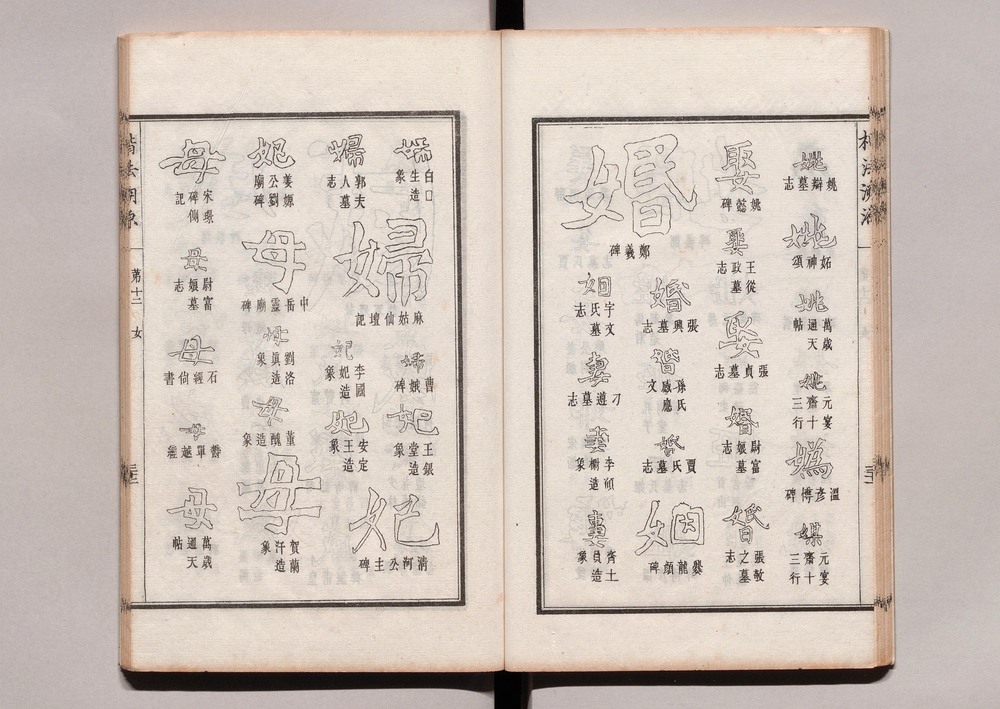 楷法溯源
姚
姚辯墓志
姚
妬神頌
姚
萬歲通天帖
姚
元宴齋十三行
媯
溫彥博碑
媒
元宴齋十三行
娶
姚懿碑
娶
王從政墓志
娶
張貞墓志
婚
尉富娘墓志
婚
張敬之墓志
婚
鄭義碑
婚
張興墓志
婚
孫氏感應文
婚
賈氏墓志
姻
爨龍顏碑
姻
宇文氏墓志
妻
刁遵墓志
妻
造象
妻
齊士員造象
婦
白口生造象
婦
麻姑仙壇記
婦
曹娥碑
妃
王銀堂造象
妃
清河公主碑
婦
郭夫人墓志
妃
李國妃造象
妃
安定王造象
妃
姜嫄公劉廟碑
母
中岳靈廟碑
母
劉洛眞造象
母
董醜造象
母
賀蘭汗造象
母
宋璟碑側記
母
尉富娘墓志
母
石經尙書
母
單越經
母
萬歲通天帖
楷法溯源
第十二 女